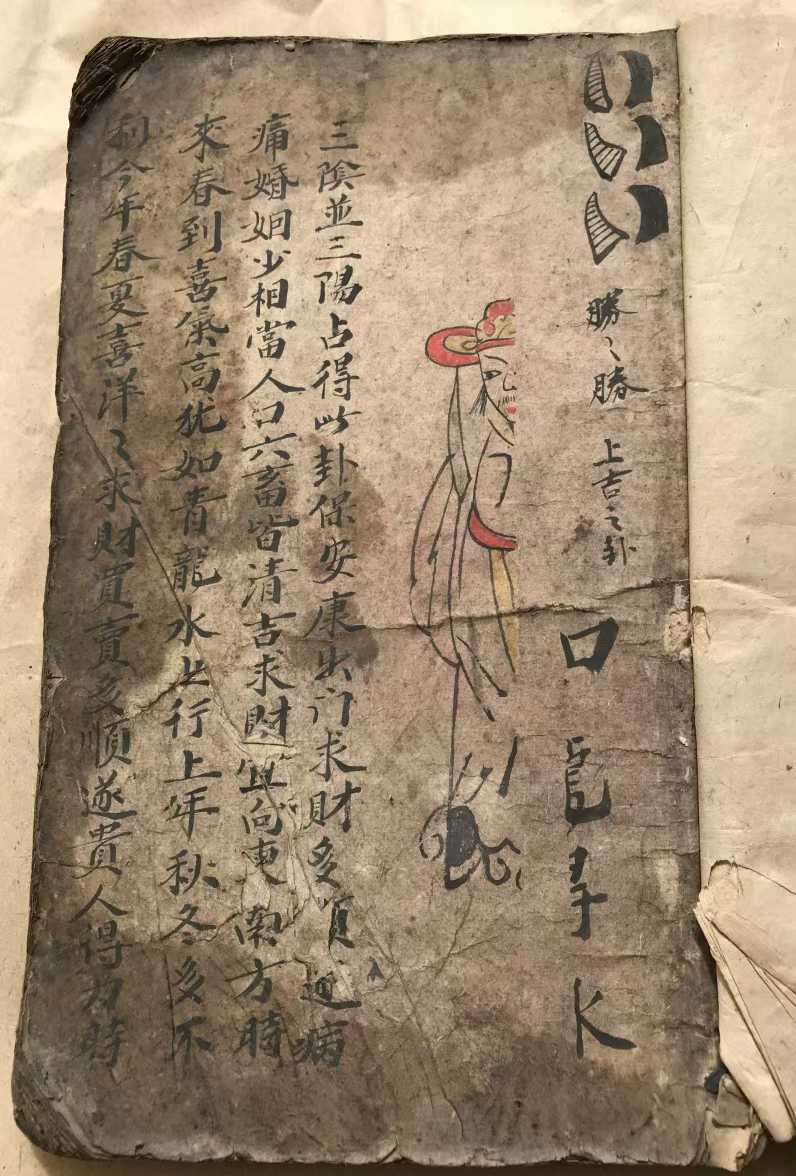 勝〻勝 上吉之卦
三隂並三陽占得此卦保安康出门求財多順遂病
痛婚姻少相當人口六畜皆清吉求財宜向東南方時
來春到喜氣高犹如青龍水上行上年秋冬多不
利今年春夏喜洋〻求財買賣多順遂貴人得为時